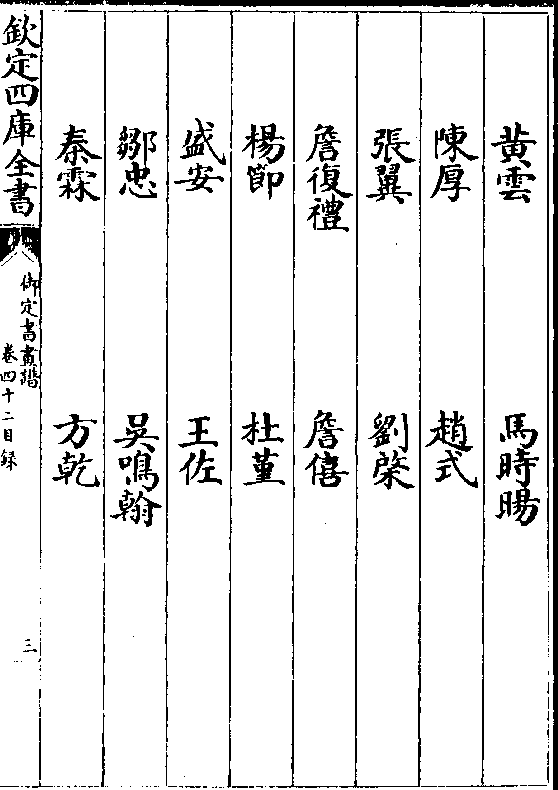 黄雲　馬時暘
陳厚　趙式
張翼　劉棨
詹復禮　詹僖
楊節　杜堇
盛安　王佐
鄒忠　吳鳴翰
秦霖　方乾
欽定四庫全書
御定書畫譜
卷四十二目録
三